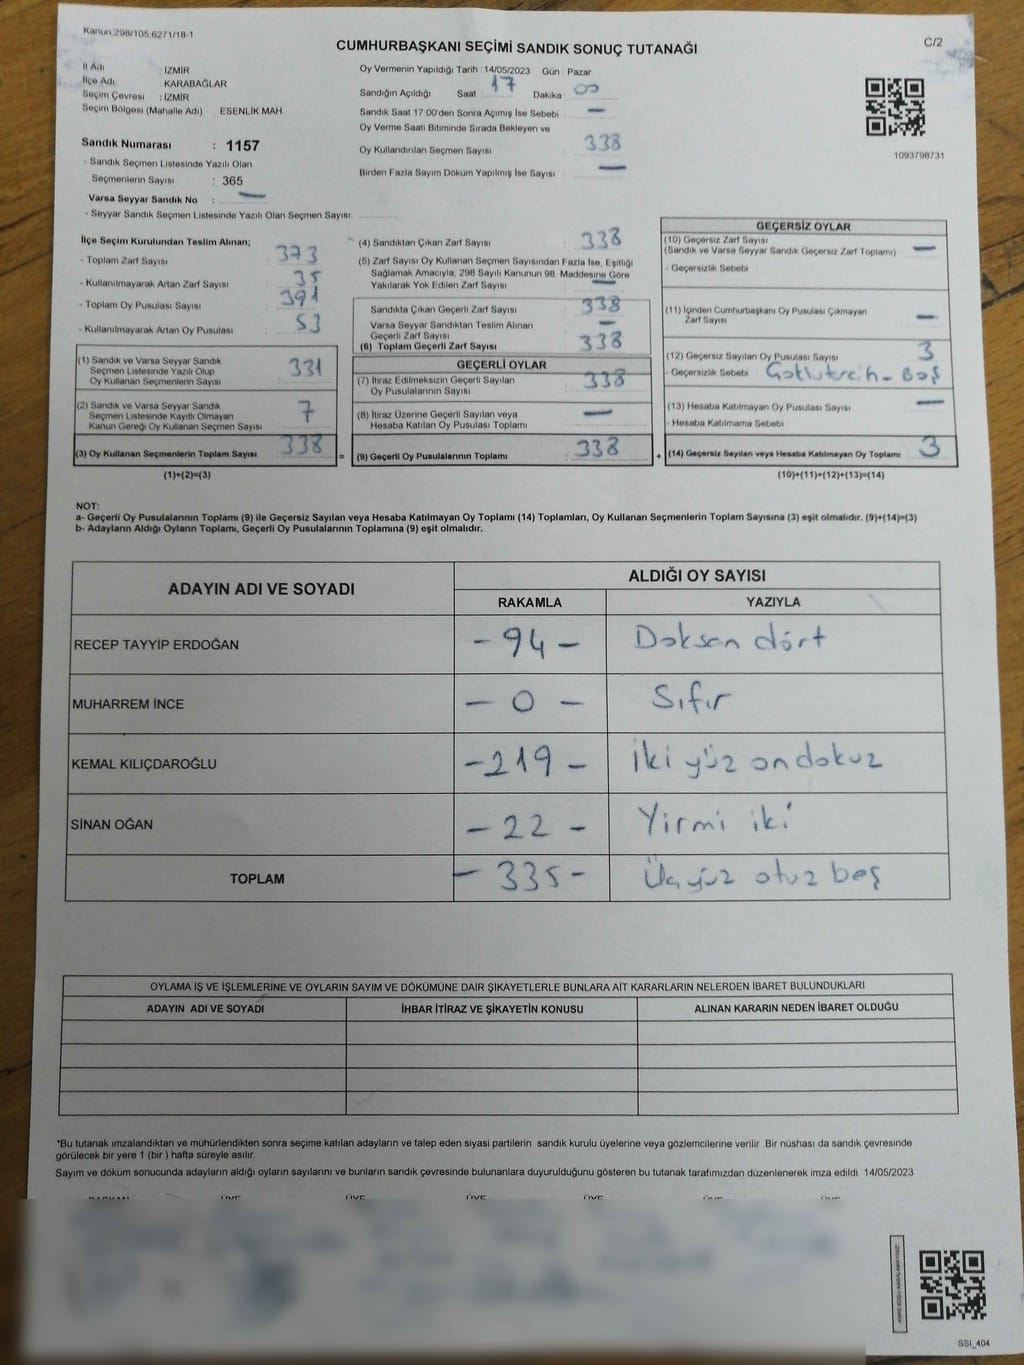 Kanun 298/105,6271/18-1
C/2
CUMHURBAŞKANI SEÇİMİ SANDIK SONUÇ TUTANAĞI
İl Adı : İZMİR
İlçe Adı : KARABAĞLAR
Seçim Çevresi : İZMİR
Seçim Bölgesi (Mahalle Adı) : ESENLİK MAH.
Sandık Numarası : 1157
- Sandık Seçmen Listesinde Yazılı Olan
Seçmenlerin Sayısı : 365
Varsa Seyyar Sandık No : —
- Seyyar Sandık Seçmen Listesinde Yazılı Olan Seçmen Sayısı:
Oy Vermenin Yapıldığı Tarih : 14/05/2023 Gün : Pazar
Sandığın Açıldığı Saat 17 Dakika 00
Sandık Saat 17.00'den Sonra Açımış İse Sebebi : —
Oy Verme Saati Bitiminde Sırada Bekleyen ve
Oy Kullandırılan Seçmen Sayısı : 338
Birden Fazla Sayım Döküm Yapılmış İse Sayısı : —
1093798731
İlçe Seçim Kurulundan Teslim Alınan;
- Toplam Zarf Sayısı : 373
- Kullanılmayarak Artan Zarf Sayısı : 35
- Toplam Oy Pusulası Sayısı : 391
- Kullanılmayarak Artan Oy Pusulası : 53
(1) Sandık ve Varsa Seyyar Sandık
Seçmen Listesinde Yazılı Olup
Oy Kullanan Seçmenlerin Sayısı : 331
(2) Sandık ve Varsa Seyyar Sandık
Seçmen Listesinde Kayıtlı Olmayan
Kanun Gereği Oy Kullanan Seçmen Sayısı : 7
(3) Oy Kullanan Seçmenlerin Toplam Sayısı : 338 =
(1)+(2)=(3)
(4) Sandıktan Çıkan Zarf Sayısı : 338
(5) Zarf Sayısı Oy Kullanan Seçmen Sayısından Fazla İse, Eşitliği
Sağlamak Amacıyla, 298 Sayılı Kanunun 98. Maddesine Göre
Yakılarak Yok Edilen Zarf Sayısı : —
Sandıkta Çıkan Geçerli Zarf Sayısı : 338
Varsa Seyyar Sandıktan Teslim Alınan
Geçerli Zarf Sayısı : —
(6) Toplam Geçerli Zarf Sayısı : 338
GEÇERLİ OYLAR
(7) İtiraz Edilmeksizin Geçerli Sayılan
Oy Pusulalarının Sayısı : 338
(8) İtiraz Üzerine Geçerli Sayılan veya
Hesaba Katılan Oy Pusulası Toplamı : —
(9) Geçerli Oy Pusulalarının Toplamı : 338 +
GEÇERSİZ OYLAR
(10) Geçersiz Zarf Sayısı
(Sandık ve Varsa Seyyar Sandık Geçersiz Zarf Toplamı) : —
- Geçersizlik Sebebi
(11) İçinden Cumhurbaşkanı Oy Pusulası Çıkmayan
Zarf Sayısı : —
(12) Geçersiz Sayılan Oy Pusulası Sayısı : 3
- Geçersizlik Sebebi Çoklu tercih - Boş
(13) Hesaba Katılmayan Oy Pusulası Sayısı : —
- Hesaba Katılmama Sebebi
(14) Geçersiz Sayılan veya Hesaba Katılmayan Oy Toplamı : 3
(10)+(11)+(12)+(13)=(14)
NOT:
a- Geçerli Oy Pusulalarının Toplamı (9) ile Geçersiz Sayılan veya Hesaba Katılmayan Oy Toplamı (14) Toplamları, Oy Kullanan Seçmenlerin Toplam Sayısına (3) eşit olmalıdır. (9)+(14)=(3)
b- Adayların Aldığı Oyların Toplamı, Geçerli Oy Pusulalarının Toplamına (9) eşit olmalıdır.
ADAYIN ADI VE SOYADI
ALDIĞI OY SAYISI
RAKAMLA YAZIYLA
RECEP TAYYİP ERDOĞAN - 94 - Doksan dört
MUHARREM İNCE - 0 - Sıfır
KEMAL KILIÇDAROĞLU - 219 - İki yüz on dokuz
SİNAN OĞAN - 22 - Yirmi iki
TOPLAM - 335 - Üç yüz otuz beş
OYLAMA İŞ VE İŞLEMLERİNE VE OYLARIN SAYIM VE DÖKÜMÜNE DAİR ŞİKAYETLERLE BUNLARA AİT KARARLARIN NELERDEN İBARET BULUNDUKLARI
ADAYIN ADI VE SOYADI İHBAR İTİRAZ VE ŞİKAYETİN KONUSU ALINAN KARARIN NEDEN İBARET OLDUĞU
*Bu tutanak imzalandıktan ve mühürlendikten sonra seçime katılan adayların ve talep eden siyasi partilerin sandık kurulu üyelerine veya gözlemcilerine verilir. Bir nüshası da sandık çevresinde
görülecek bir yere 1 (bir) hafta süreyle asılır.
Sayım ve döküm sonucunda adayların aldığı oyların sayılarını ve bunların sandık çevresinde bulunanlara duyurulduğunu gösteren bu tutanak tarafımızdan düzenlenerek imza edildi. 14/05/2023
BAŞKAN ÜYE ÜYE ÜYE ÜYE ÜYE ÜYE
SSI_404